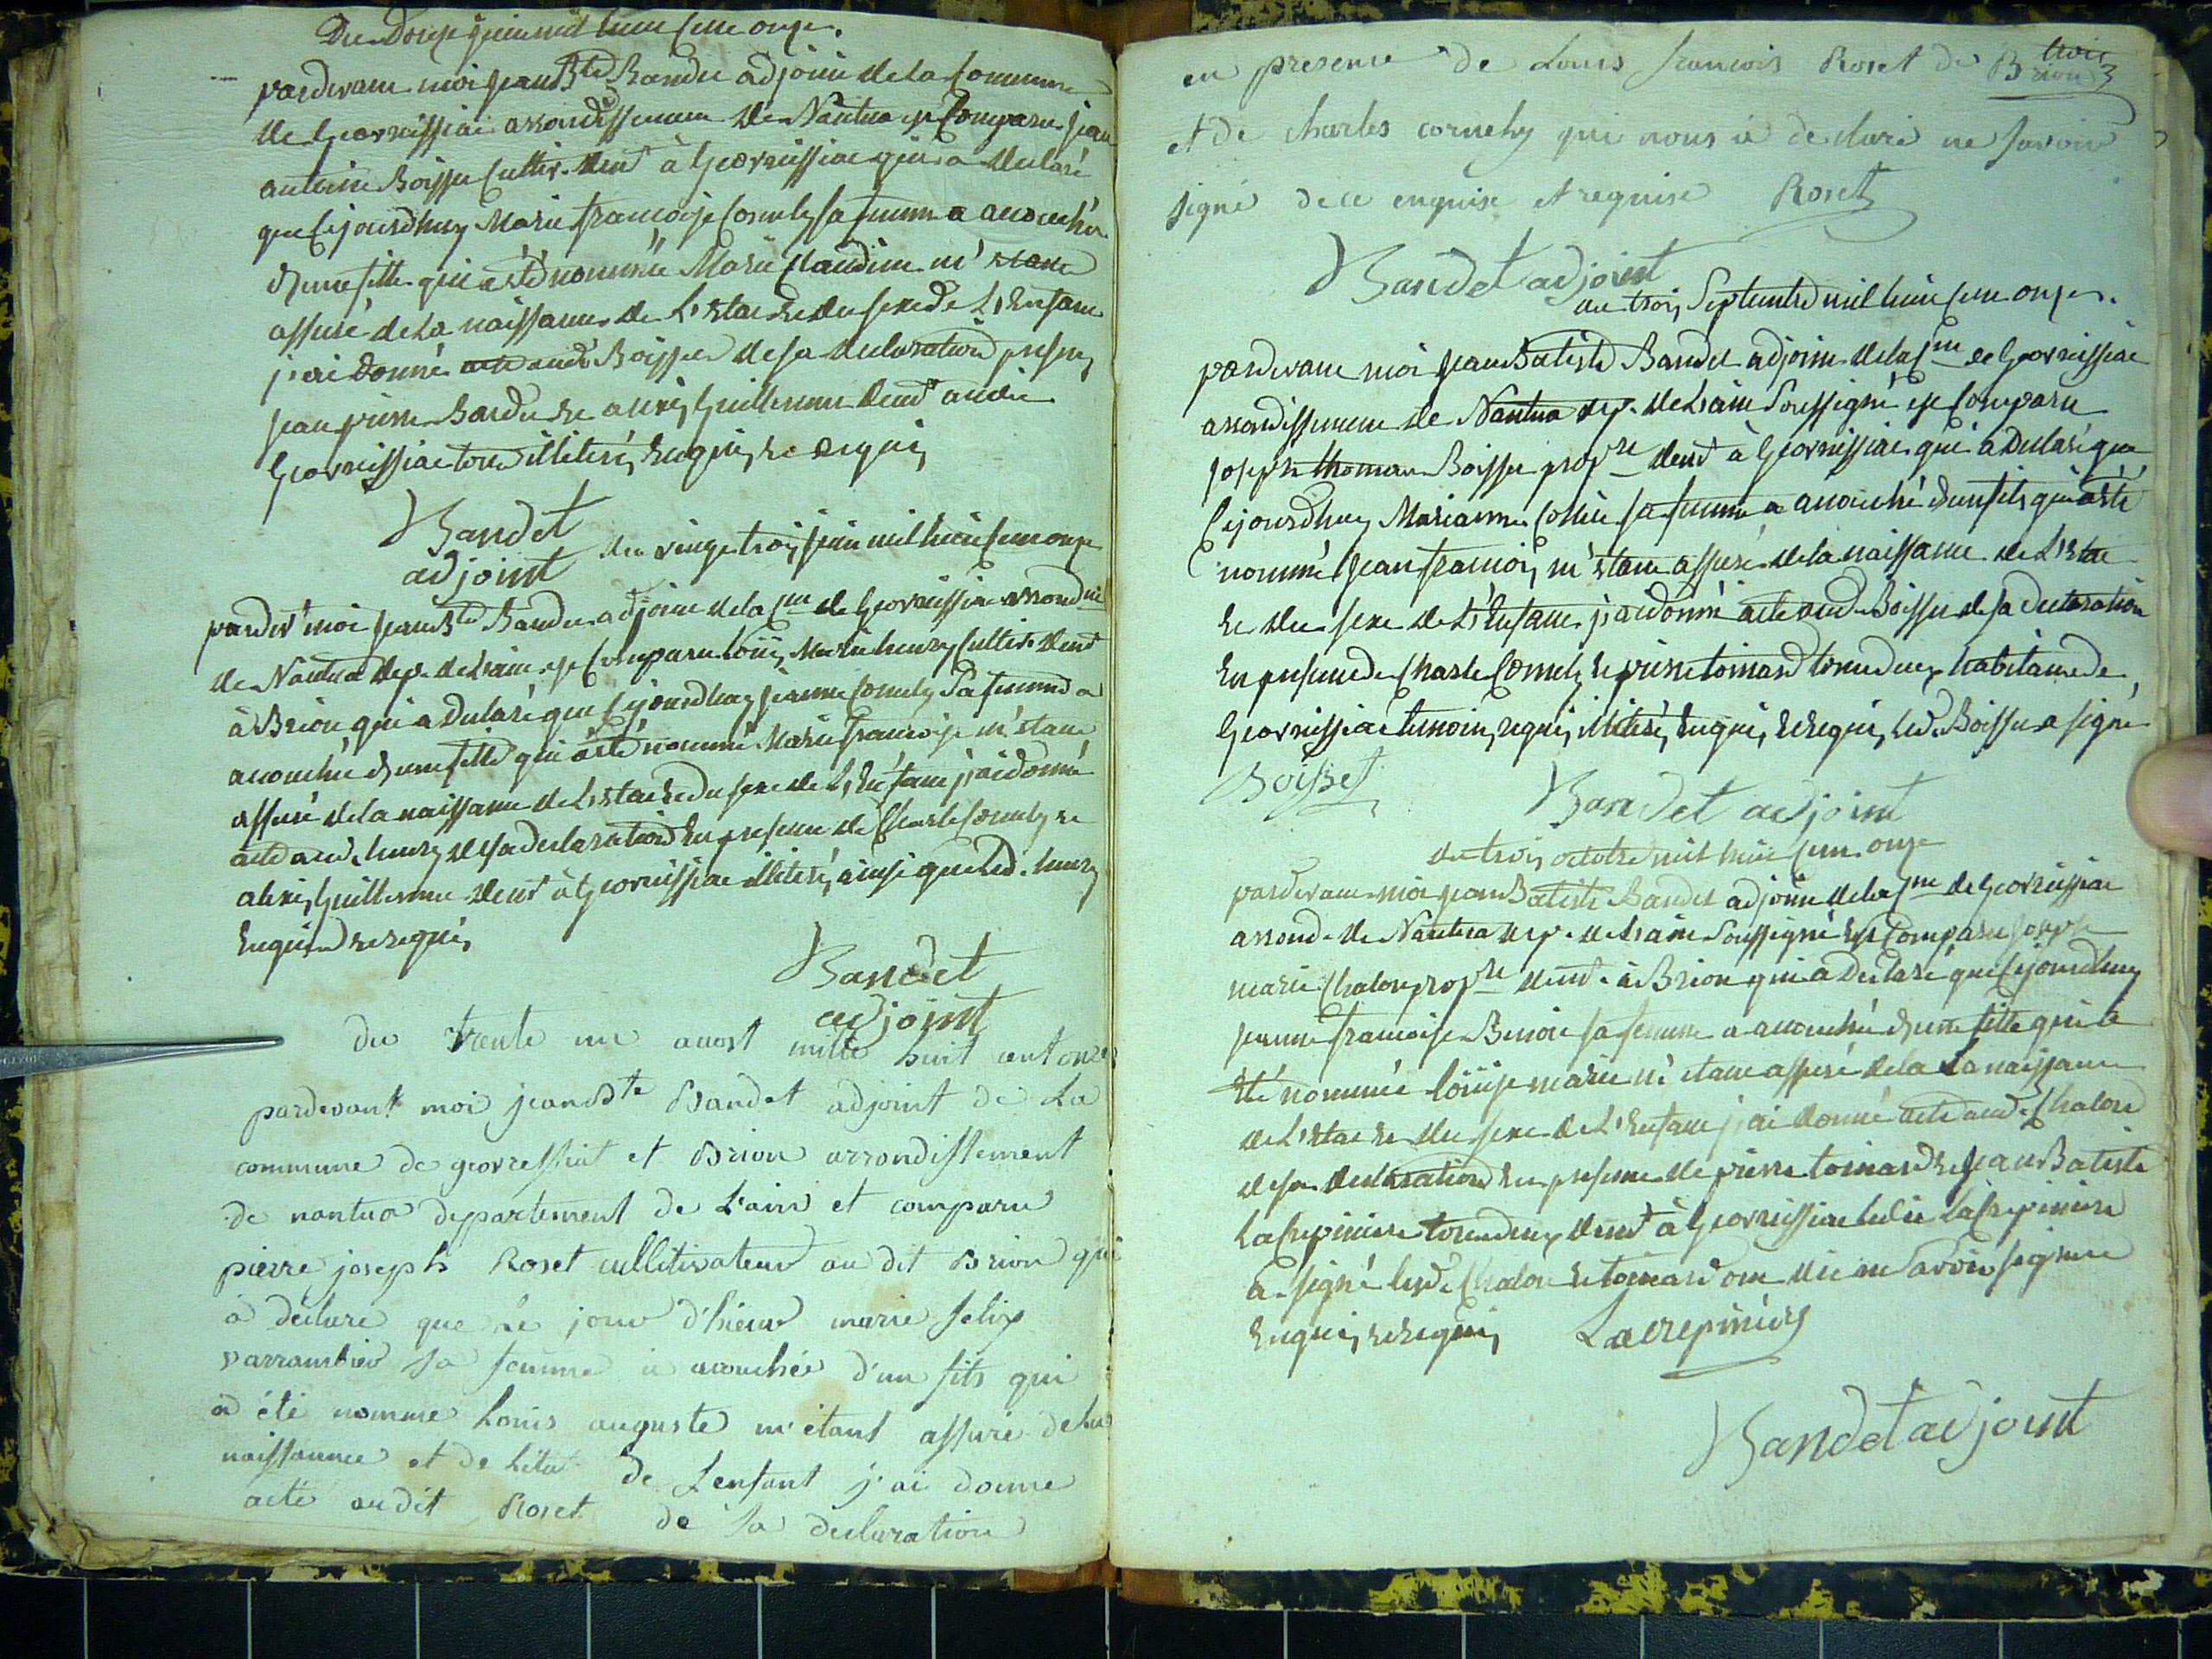 Du Douze juin mil huit cent onze.
pardevant moi jean Bte Bandet adjoint de la Commune
de Georvissiat arrondissement de Nantua est Comparu jean
antoine Boisset Cultiv. demt à Georvissiat qui a declaré
que Cejourdhuy Marie françoise Cornely sa femme a accouchée
d'une fille qui a été nommée Marie Claudine m'étant
assuré de La naissance de L'Etat et du sexe de L'Enfant
j'ai donné acte audt Boisset de sa declaration présens
jean pierre Bandet et alexis Guillermet demt audit
Georvissiat tous illiterés Enquis et Requis
Bandet
adjoint
du vingt trois juin mil huit cent onze
pardevt moi jean Bte Bandet adjoint de la Cne de Georvissiat arrondmt
de Nantua dep. de L'ain est Comparu Loüis Marie henry Cultiv. demt
à Brion qui a declaré que Cejourdhuy jeanne Cornely sa femme a
accouchée d'une fille qui a été nommé Marie françoise m'étant
assuré de la naissance de L'état et du sexe de L'Enfant j'ai donné
acte aud. henry de sa declaration En presence de Charle Cornely et
alexis Guillermet demt à Georvissiat illiterés ainsi que Led. henry
Enquis et requis
Bandet
adjoint
du trente un auost mille huit cent onze
pardevant moi jean Bte Bandet adjoint de La
commune de georressiat et Brion arrondissement
de nantua deppartement de L'ain et comparu
pierre joseph Roset cullitivateur au dit Brion qui
à déclare que Le jour d'hieur marie felix
varrambier sa femme à acouchée d'un fils qui
à été nomme Louis auguste m'étant assuré de la
naissance et de L'état de Lenfant j'ai donne
acte audit Roset de sa declaration
en presence de Louis francois Roset de Brion
et de charles cornely qui nous à declaré ne savoir
signé de ce enquise et requise Roset
Bandet adjoint
du trois Septembre mil huit cent onze.
pardevant moi jean Batiste Bandet adjoint de la Cne de Georvissiat
arrondissement de Nantua dep. de L'ain Soussigné est Comparu
joseph thomas Boisset propre demt à Georvissiat qui a Declaré que
Cejourdhuy Marianne Collet sa femme a accouché d'un fils qui a été
nommé jean françois m'étant assuré de la naissance de L'Etat
et du sexe de L'Enfant j'ai donné acte aud. Boisset de sa declaration
En presence de Charle Cornely et pierre toinard tous deux habitants de
Georvissiat temoins requis illiterés Enquis et Requis led. Boisset a signé
Boisset
Bandet adjoint
du trois octobre mil huit cent onze
pardevant moi jean Batiste Bandet adjoint de la Cne de Georvissiat
arrond. de Nantua dep. de L'ain Soussigné Est Comparu joseph
marie Chalon propre demt. à Brion qui a Declaré que Cejourdhuy
jeanne françoise Benoit sa femme a accouchée d'une fille qui a
été nommée Loüise marie m'étant assuré de la La naissance
de L'état et du sexe de L'Enfant j'ai donné acte aud. Chalon
de sa declaration En presence de pierre toinard et jean Batiste
Lacrepiniere tous deux demt à Georvissiat Ledit Lacrepiniere
a signé Led. Chalon et toinard ont dit ne savoir signer
Enquis et Requis Lacrepiniere
Bandet adjoint